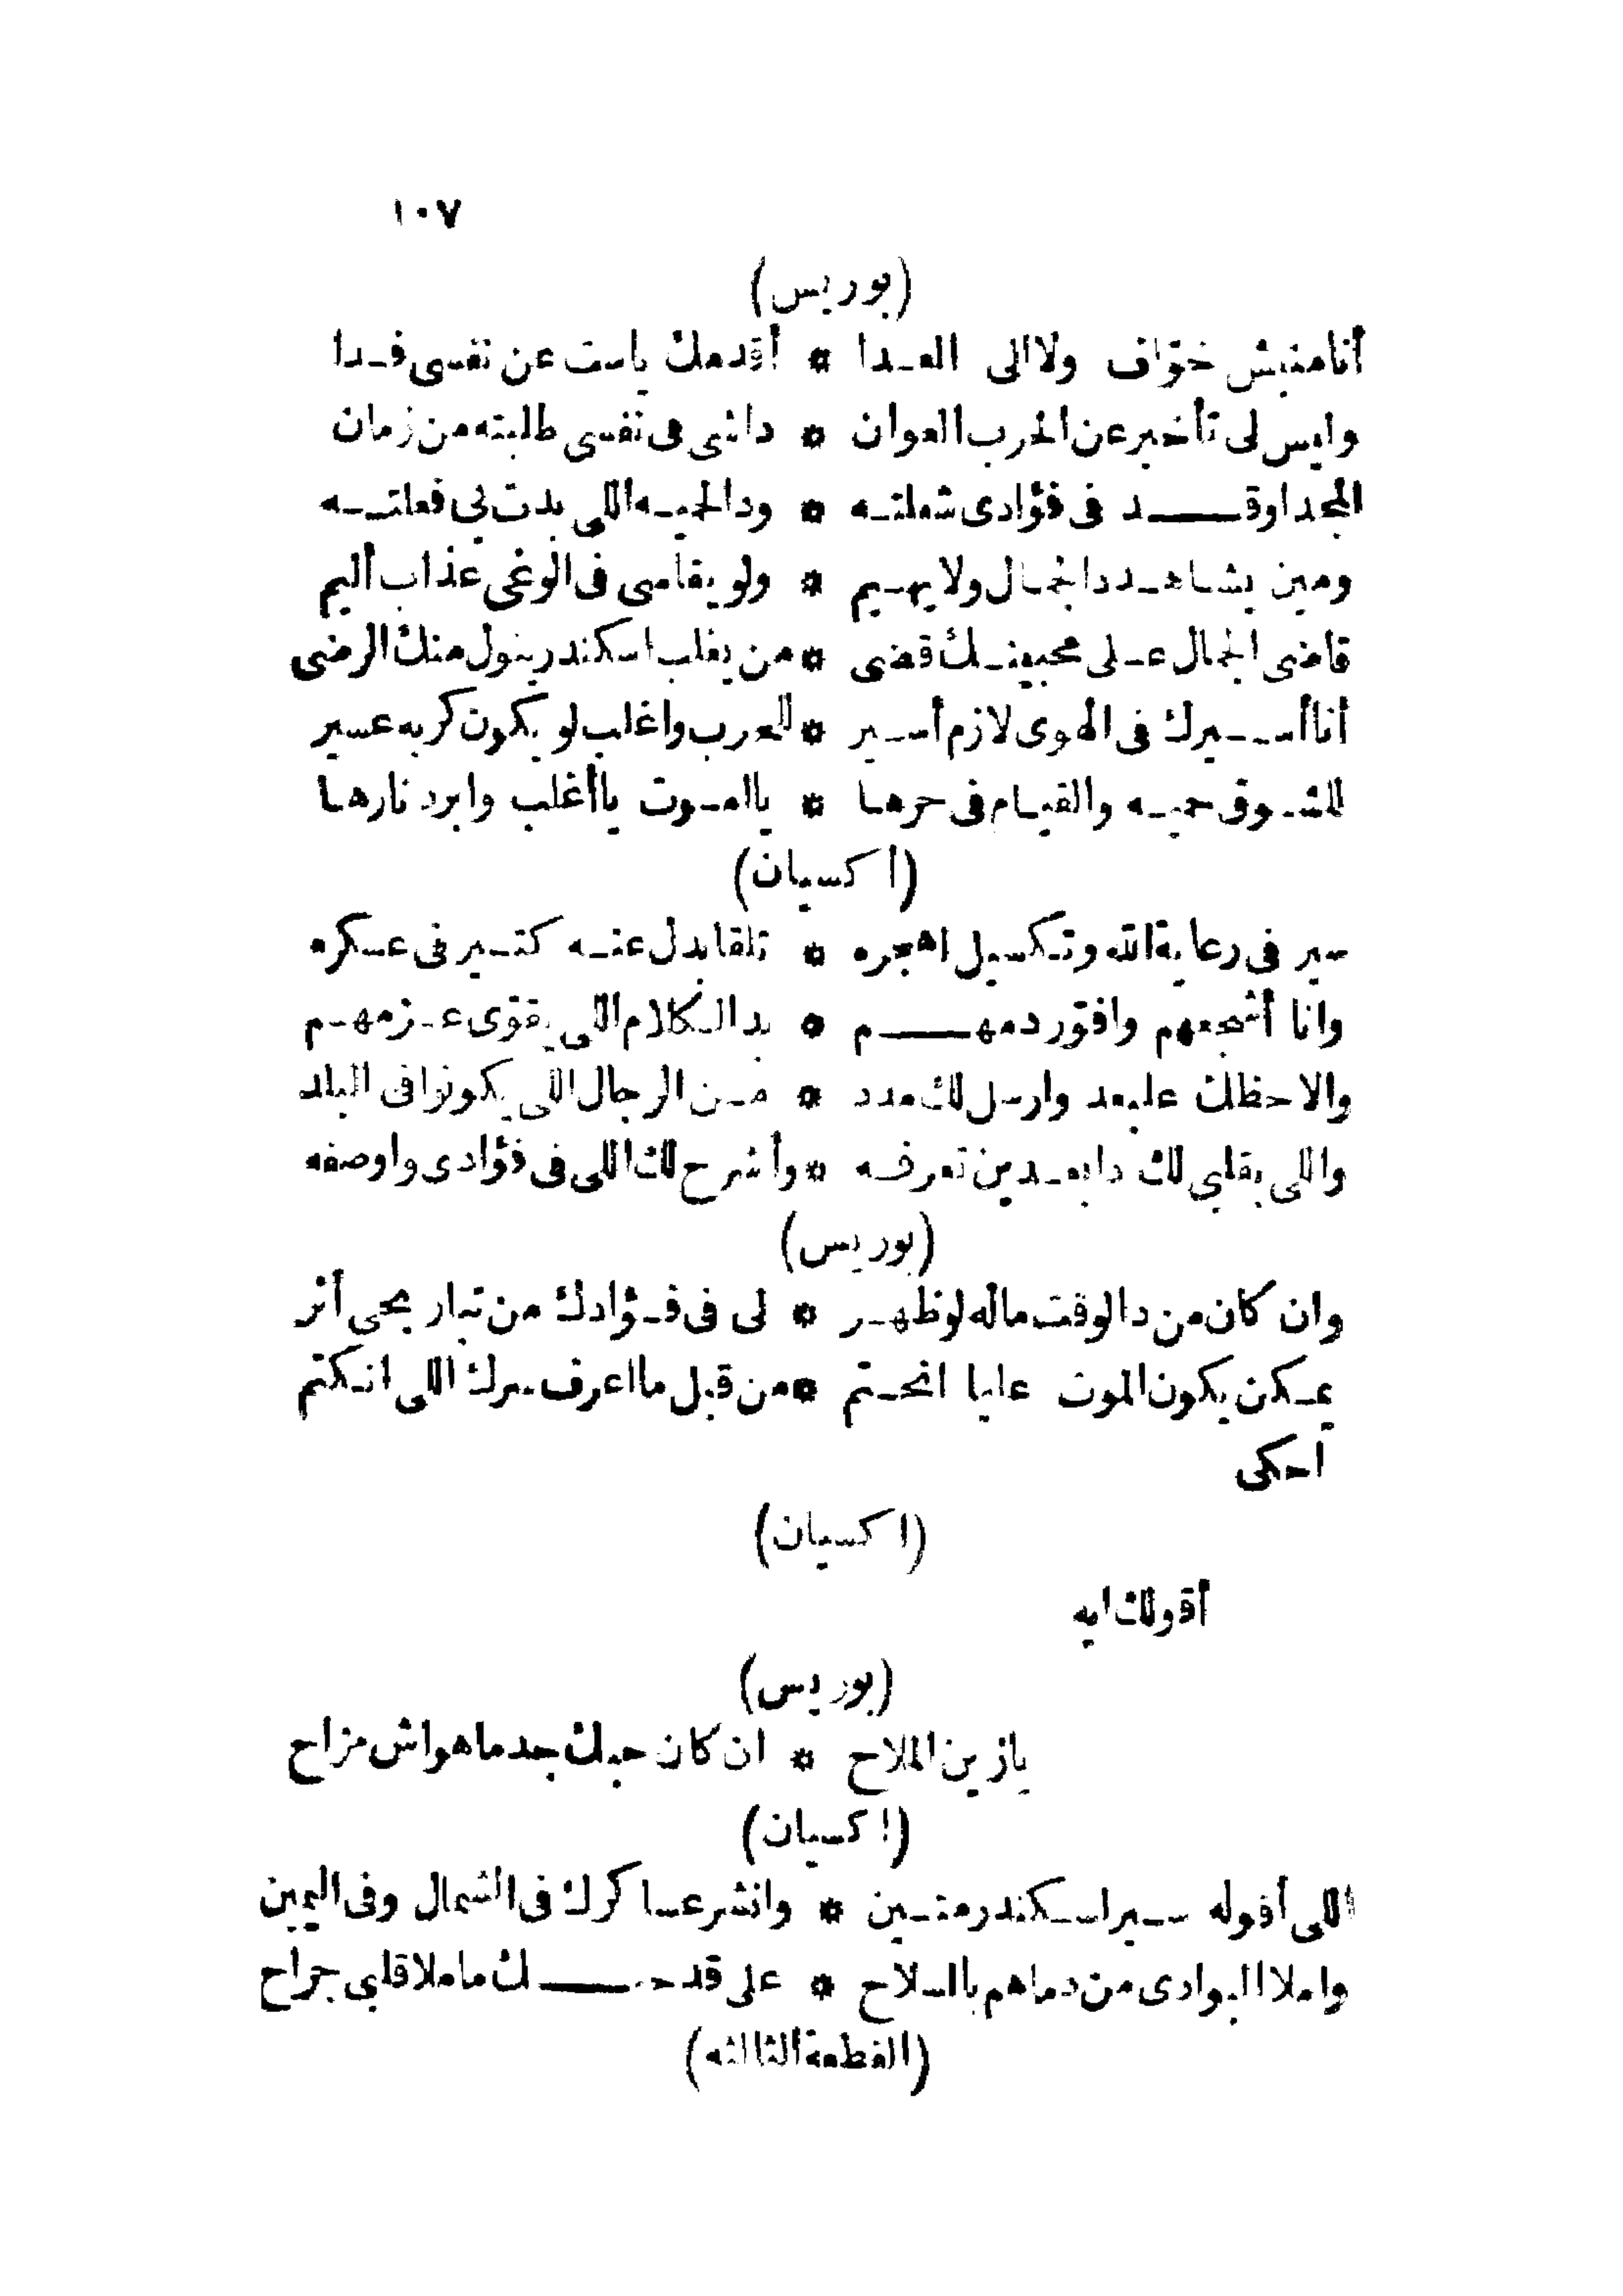 ١٠٧
(بوريس)
أنا منيش خوّاف ولا الى العدا * أقدمك ياست عن نفسى فدا
وليس لى تأخير عن الحرب العوان * داشى فى نفسى طلبته من زمان
المجد اوقد فى فؤادى شعلته * ودالحيه اللى بدت لى فعلته
ومين يشاهد دا الجمال ولا يهيم * ولو يقاسى فى الوغى عذاب أليم
قاضى الجمال على محبينك قضى * من يغلب اسكندر ينول منك الرضى
أنا أسيرك فى الهوى لازم أسير * للحرب واغلب لو يكون كربه عسير
للشوق حميه والقيام فى حرها * ياالموت ياأغلب وابرد نارها
(اكسيان)
سير فى رعاية الله وتكسيل اهجره * تلقا بدل عنه كتير فى عسكره
وانا أشجعهم وافتور دمهم * بدا الكلام اللى يقوّى عزمهم
والاحظك عليبعد وارسل لك مدد * من الرجال اللى يكونوا فى البلد
واللى بقلبى لك دا بعدين تعرفه * وأشرح لك اللى فى فؤادى واوصفه
(بوريس)
وان كان من دا الوقت ماله لو ظهر * لى فى فؤادك من تبار يحى أثر
يمكن يكون الموت عليا انحتم * من قبل ما اعرف سرك اللى انكتم
احكى
(اكسيان)
أقولك ايه
(بوريس)
يازين الملاح * ان كان حبك جد ماهواش مزاح
(اكسيان)
اللى أقوله سير اسكندر متين * وانشر عساكرك فى الشمال وفى اليمين
واملا البوادى من دماهم بالسلاح * على قد حبك ماملا قلبى جراح
(القطعة الثالثه)